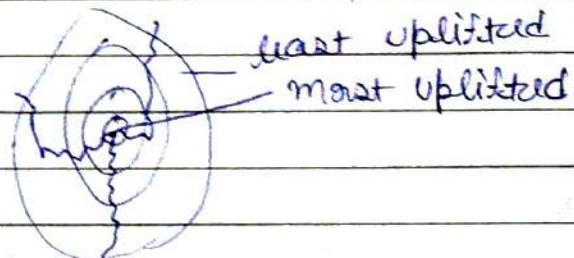 least uplifted
most uplifted